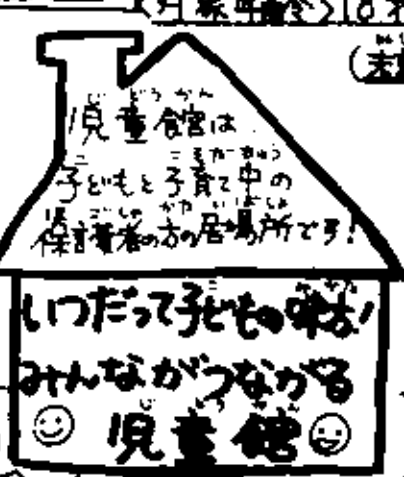 対象年齢>18才
児童館は
子どもと子育て中の
保護者の方の居場所です!
いつだって子どもの味方!
みんながつながる
児童館